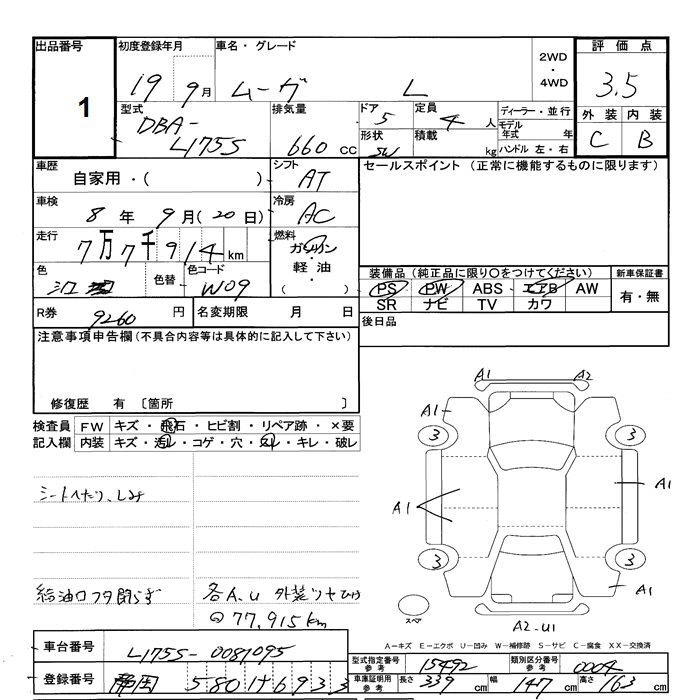 出品番号 1
初度登録年月 19 9月
車名・グレード ムーヴ L
2WD・4WD
評価点 3.5
外装 内装
C B
型式 DBA-L175S
排気量 660 cc
ドア 5 定員 4 人
形状 5W 積載 kg
ディーラー・並行
モデル年式 年
ハンドル 左・右
車歴 自家用・( )
シフト AT
セールスポイント (正常に機能するものに限ります)
車検 8年 9月(20日)
冷房 AC
走行 7万7千914km
燃料 ガソリン・軽油・( )
色 色替 色コード W09
装備品(純正品に限り○をつけてください) 新車保証書
PS PW ABS エアB AW 有・無
SR ナビ TV カワ
R券 9260 円 名変期限 月 日
後日品
注意事項申告欄(不具合内容等は具体的に記入して下さい)
修復歴 有 〔箇所 〕
検査員 FW キズ・飛石・ヒビ割・リペア跡・×要
記入欄 内装 キズ・汚れ・コゲ・穴・・キレ・破レ
シートヘたり、しみ
給油口フタ閉らず
各A、U 外装ツヤひけ
77,915km
A1 A2
A1
3 3
A1 A1
3 3
A1
スペア
A2-U1
A-キズ E-エクボ U-凹み W-補修跡 S-サビ C-腐食 XX-交換済
車台番号 L175S-0081095
型式指定番号 参考 15492 類別区分番号 参考 0004
登録番号 静岡 580 け 6933
車庫証明用 参考 長さ 339 cm 幅 147 cm 高さ 163 cm